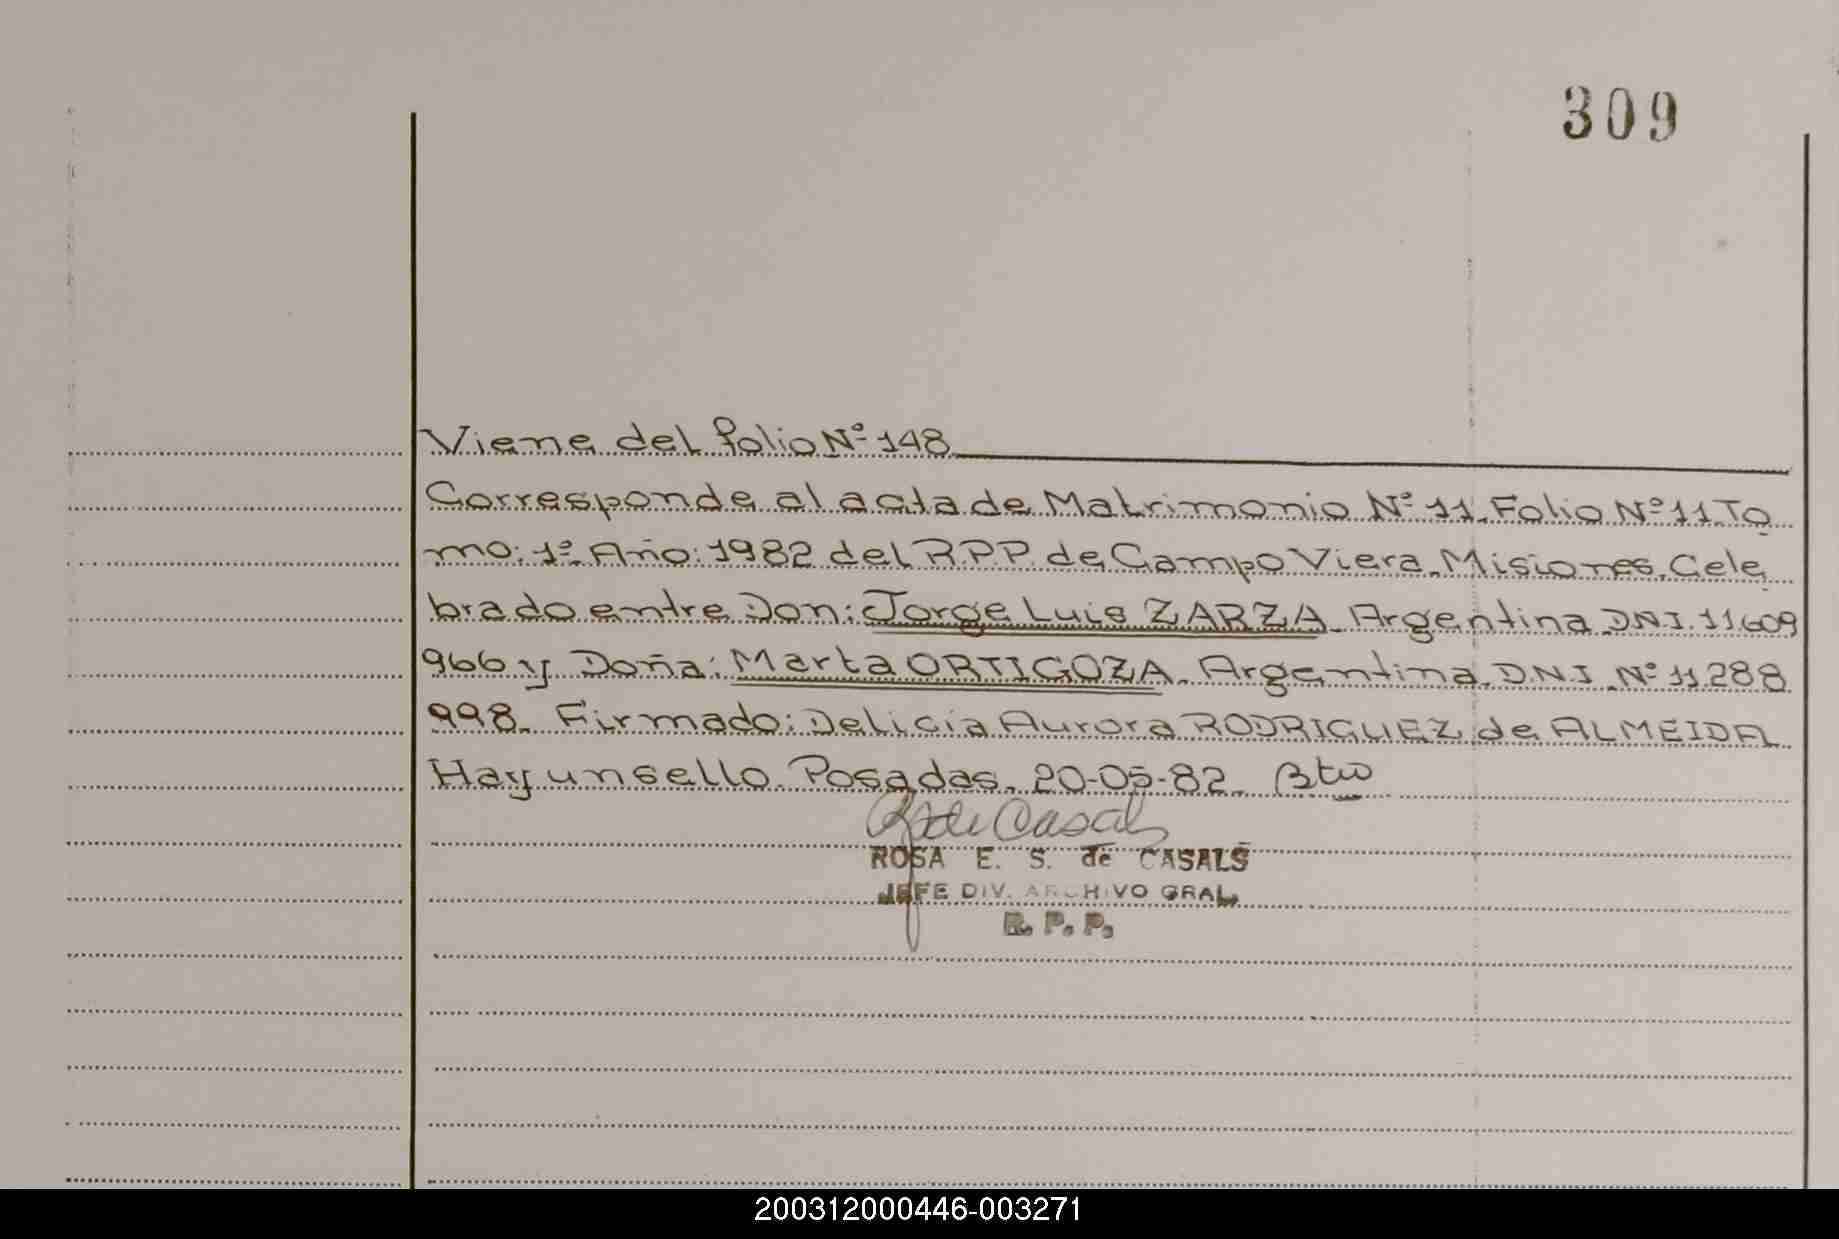 309
Viene del folio Nº 148
Corresponde al acta de Matrimonio Nº 11. Folio Nº 11 To
mo: 1º. Año: 1982 del R.P.P. de Campo Viera. Misiones. Cele
brado entre Don: Jorge Luis ZARZA. Argentina DNI. 11609
966 y Doña: Marta ORTIGOZA. Argentina. D.N.I. Nº 11.288
998. Firmado: Delicia Aurora RODRIGUEZ de ALMEIDA
Hay un sello. Posadas. 20-05-82.
R de Casals
ROSA E. S. de CASALS
JEFE DIV. ARCHIVO GRAL.
R. P. P.
200312000446-003271